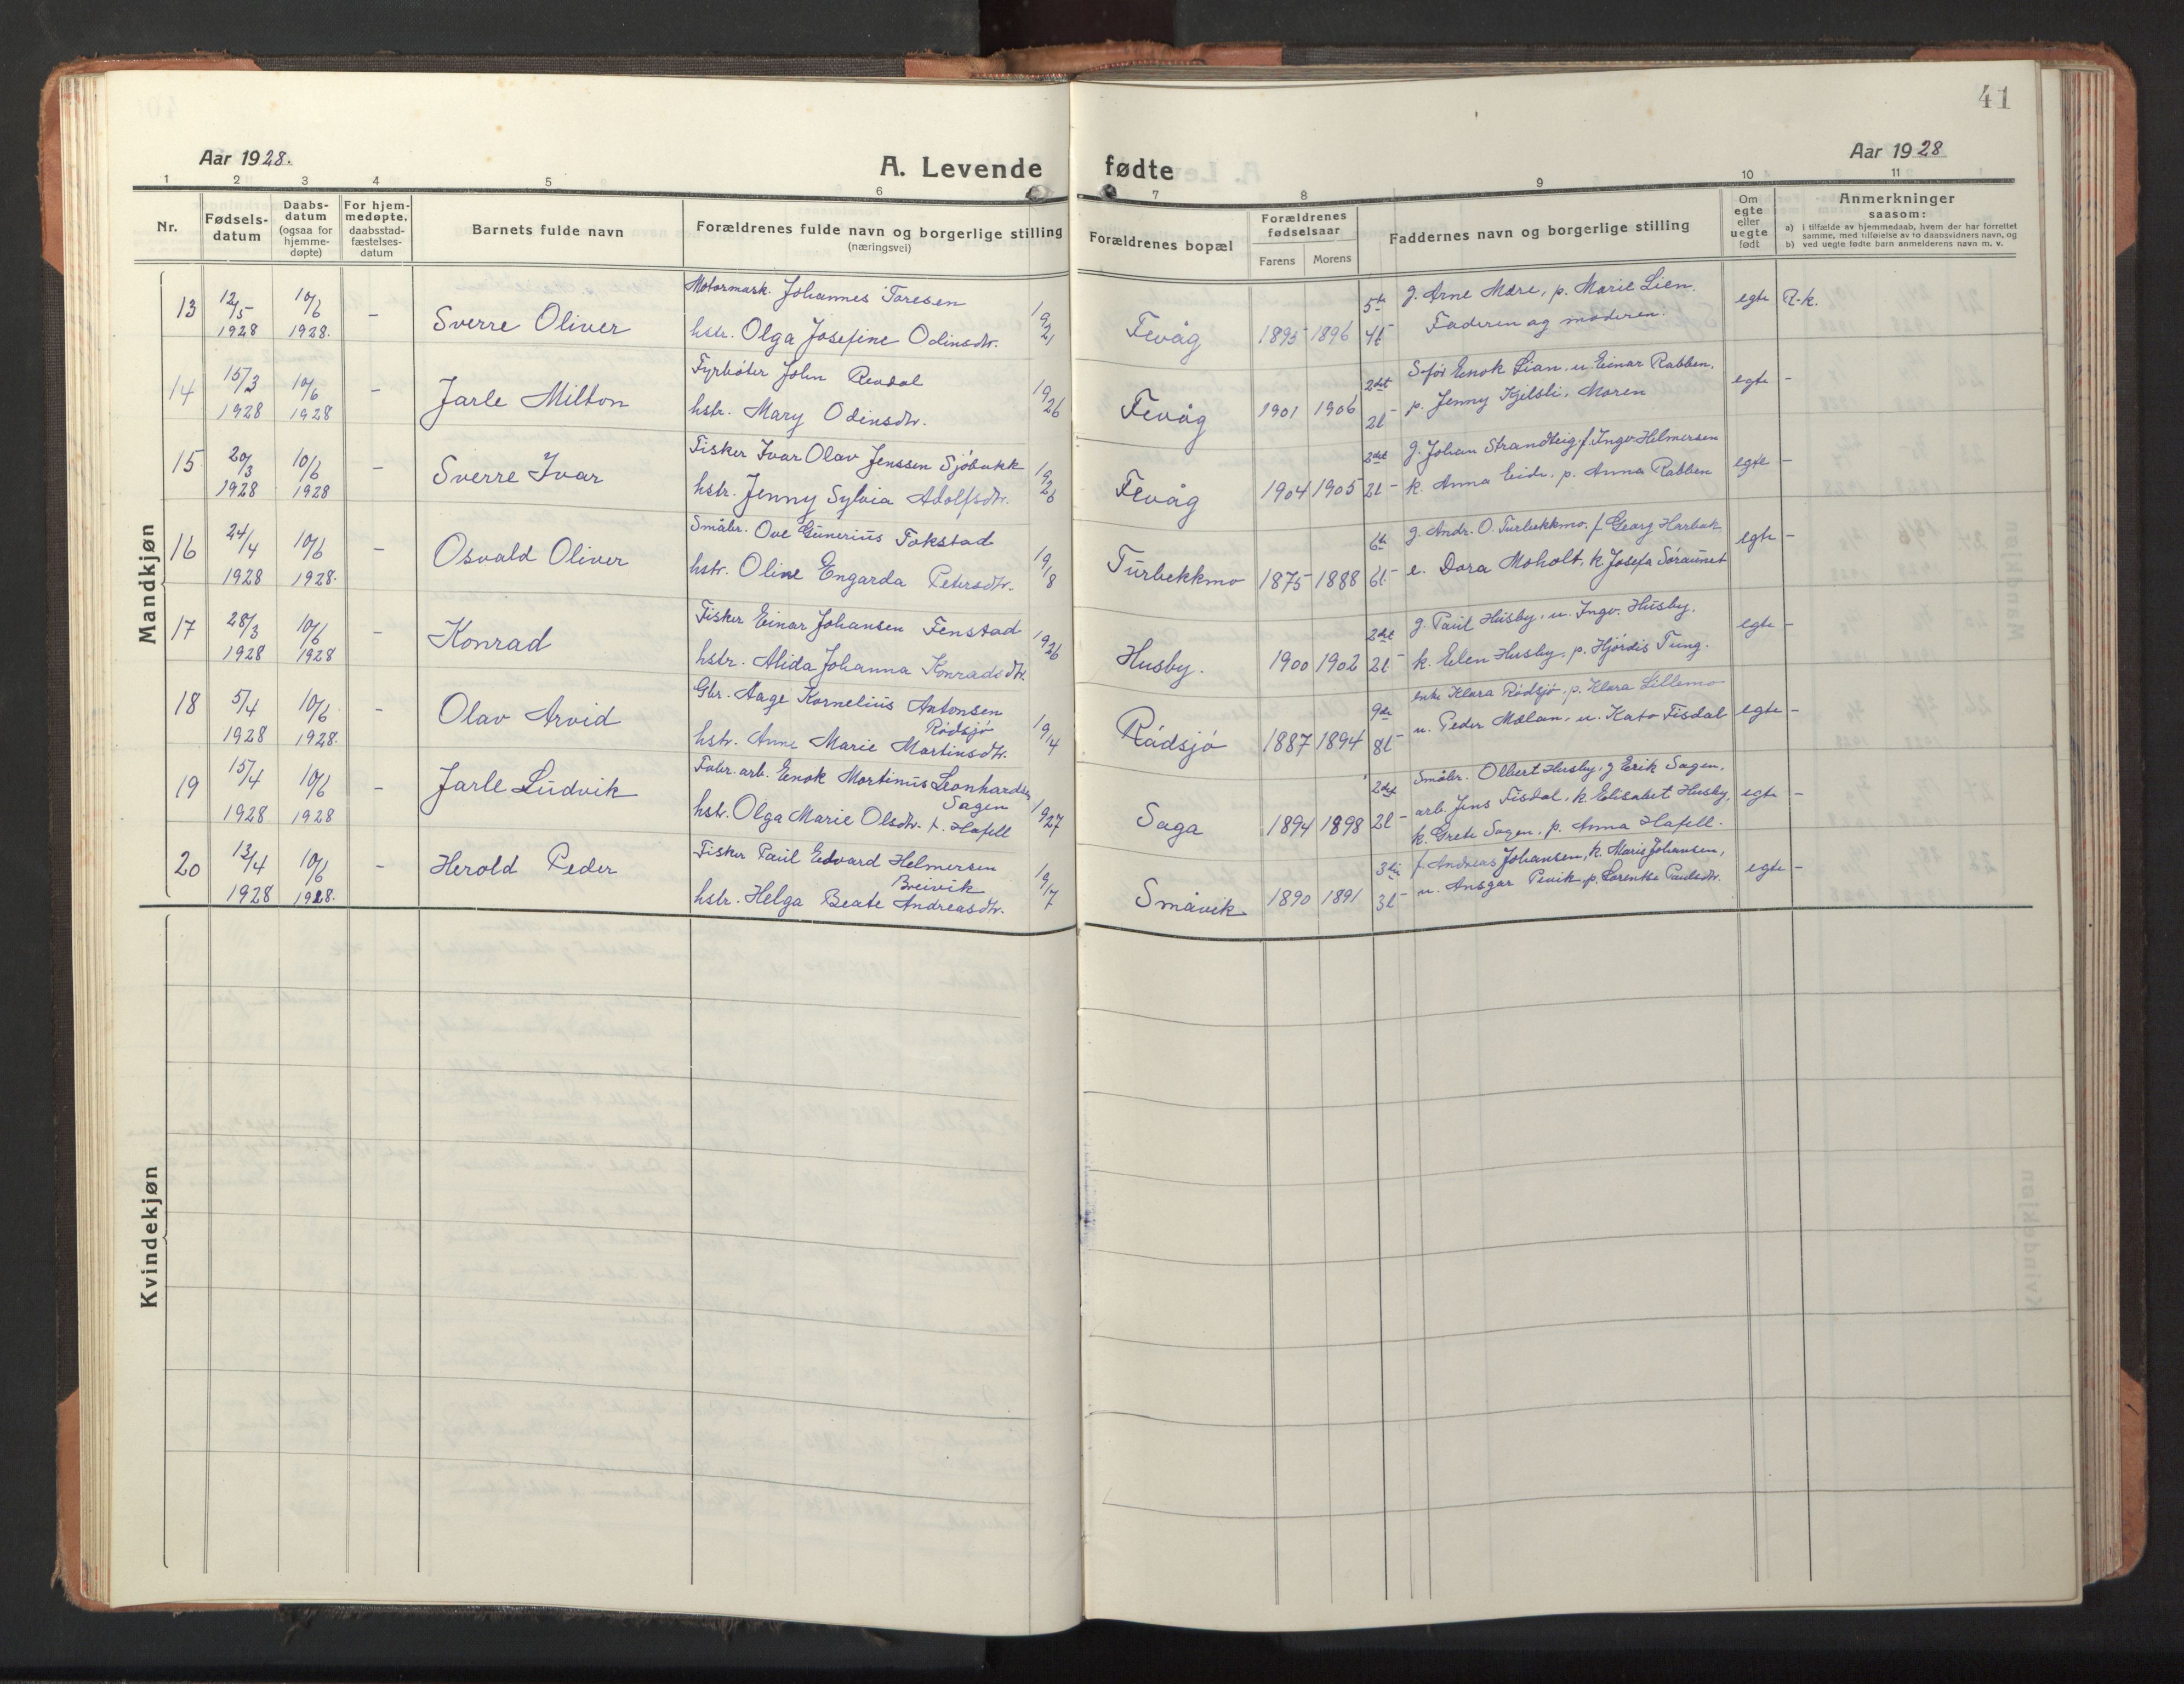 41
Aar 1928.
A. Levende fødte
Aar 1928
1 2 3 4 5 6 7 8 9 10 11
Nr.
Fødsels-
datum
Daabs-
datum
(ogsaa for
hjemme-
døpte)
For hjem-
medøpte.
daabsstad-
fæstelses-
datum
Barnets fulde navn
Forældrenes fulde navn og borgerlige stilling
(næringsvei)
Forældrenes bopæl
Forældrenes
fødselsaar
Farens Morens
Faddernes navn og borgerlige stilling
Om
egte
eller
uegte
født
Anmerkninger
saasom:
a) i tilfælde av hjemmedaab, hvem der har forrettet
samme, med tilføielse av to daabsvidners navn, og
b) ved uegte fødte barn anmelderens navn m. v.
Mandkjøn
13 12/5 1928 10/6 1928. - Sverre Oliver
Motormask. Johannes Toresen
hstr. Olga Josefine Odinsdtr. 19/21
Fevåg 1895 1896 5te 4l -
g. Arne Mære, p. Marie Lien.
Faderen og moderen.
egte R-k.
14 15/3 1928 10/6 1928 - Jarle Milton
Fyrbøter John Revdal
hstr. Mary Odinsdtr. 19/26
Fevåg 1901 1906 2det 2l -
S-før Enok Lian, u. Einar Rabben,
p. Jenny Kjelsli, Moren
egte -
15 20/3 1928 10/6 1928 - Sverre Ivar
Fisker Ivar Olav Jenssen Sjøbakk
hstr. Jenny Sylvia Adolfsdtr. 19/26
Fevåg 1904 1905 2det 2l -
g. Johan Strandteig, f. Ingv. Helmersen
k. Anna Eide, p. Anna Rabben
egte -
16 24/4 1928 10/6 1928. - Osvald Oliver
Småbr. Ove Gunerius Fokstad
hstr. Oline Engarda Petersdtr. 19/8
Turbekkmo 1875 1888 6te 6l -
g. Andr. O. Turbekkmo, f. Georg Harbak
e. Dora Moholt, k. Josefa Søraunet
egte -
17 28/3 1928 10/6 1928 - Konrad
Fisker Einar Johansen Fenstad
hstr. Alida Johanna Konradsdtr. 19/26
Husby. 1900 1902 2det 2l -
g. Paul Husby, u. Ingv. Husby.
k. Elen Husby, p. Hjørdis Tung.
egte -
18 5/4 1928 10/6 1928. - Olav Arvid
Gbr. Aage Kornelius Antonsen
Rødsjø
hstr. Anne Marie Martinsdtr. 19/14
Rødsjø 1887 1894 9de 8l -
enke Klara Rødsjø, p. Klara Lillemo
u. Peder Mælan, u. Kato Fisdal
egte -
19 15/4 1928 10/6 1928 - Jarle Ludvik
Fabr. arb. Enok Martinus Leonhardsen
Sagen
hstr. Olga Marie Olsdtr. f. Hafell 19/27
Saga 1894 1898 2det 2l -
Småbr. Olbert Husby, g Erik Sagen,
arb. Jens Fisdal, k. Elisabet Husby,
k. Grete Sagen, p. Anna Hafell.
egte -
20 13/4 1928 10/6 1928. - Herold Peder
Fisker Paul Edvard Helmersen
Breivik
hstr. Helga Beate Andreasdtr. 19/17
Småvik 1890 1891 3die 3l -
f. Andreas Johansen, k. Marie Johansen,
u. Ansgar Pevik, p. Lorentse Paulsdtr.
egte -
Kvindekjøn